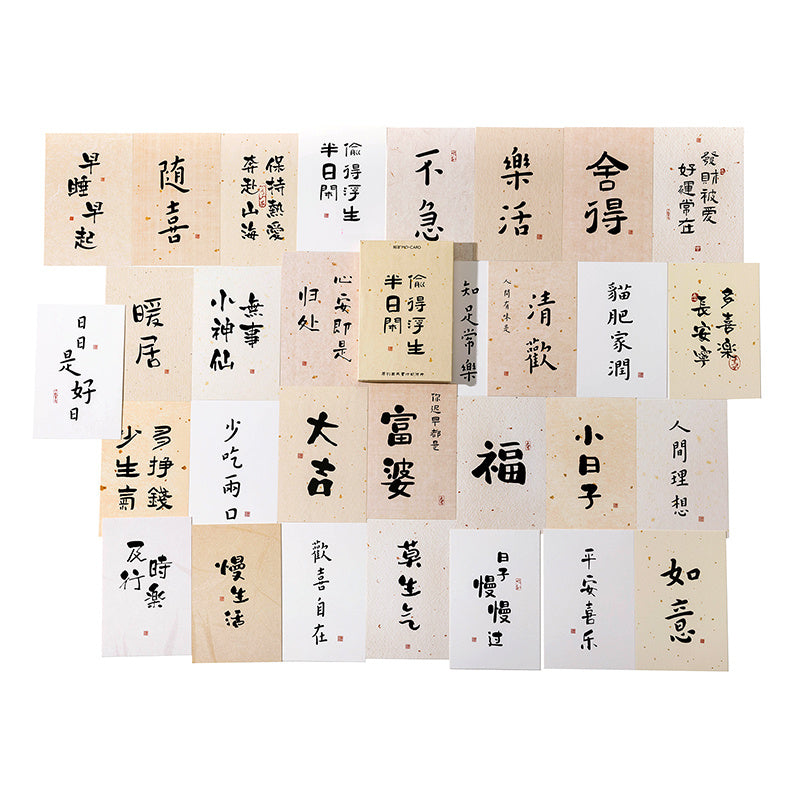 早睡
早起
随喜
保持熱愛
奔赴山海
偷得浮生
半日閑
不急
樂活
舍得
發財被愛
好運常在
暖居
無事
小神仙
心安即是
归处
偷得浮生
半日閑
知足常樂
人間有味是
清歡
貓肥家潤
多喜樂
長安寧
日日
是好日
多掙錢
少生氣
少吃兩口
大吉
你迟早都是
富婆
福
小日子
人間理想
及時
行樂
慢生活
歡喜自在
莫生气
日子
慢慢过
平安喜乐
如意